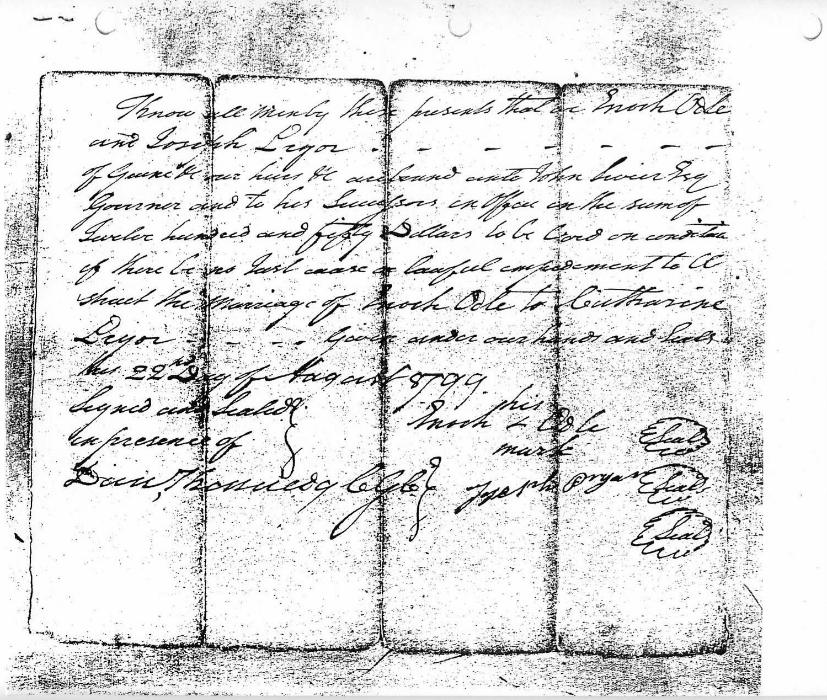 Know all men by these presents that we Enoch Ode
and Joseph Pryor - - - - - -
of Green &c our hiers &c are bound unto John Sevier Esq
Governer and to his Successors in Office in the sum of
Twelve hundred and fifty Dollars to be Void on condition
if there be no Just cause or lawful empedement to
struct the Marriage of Enoch Ode to Catharine
Pryor - - - - Given under our hands and Seals
this 22nd Day of August 1799
Signed and Sealed
in presence of
his
Enoch x Ode
mark
Seal
Dan Kennedy
Joseph Pryor
Seal
Seal